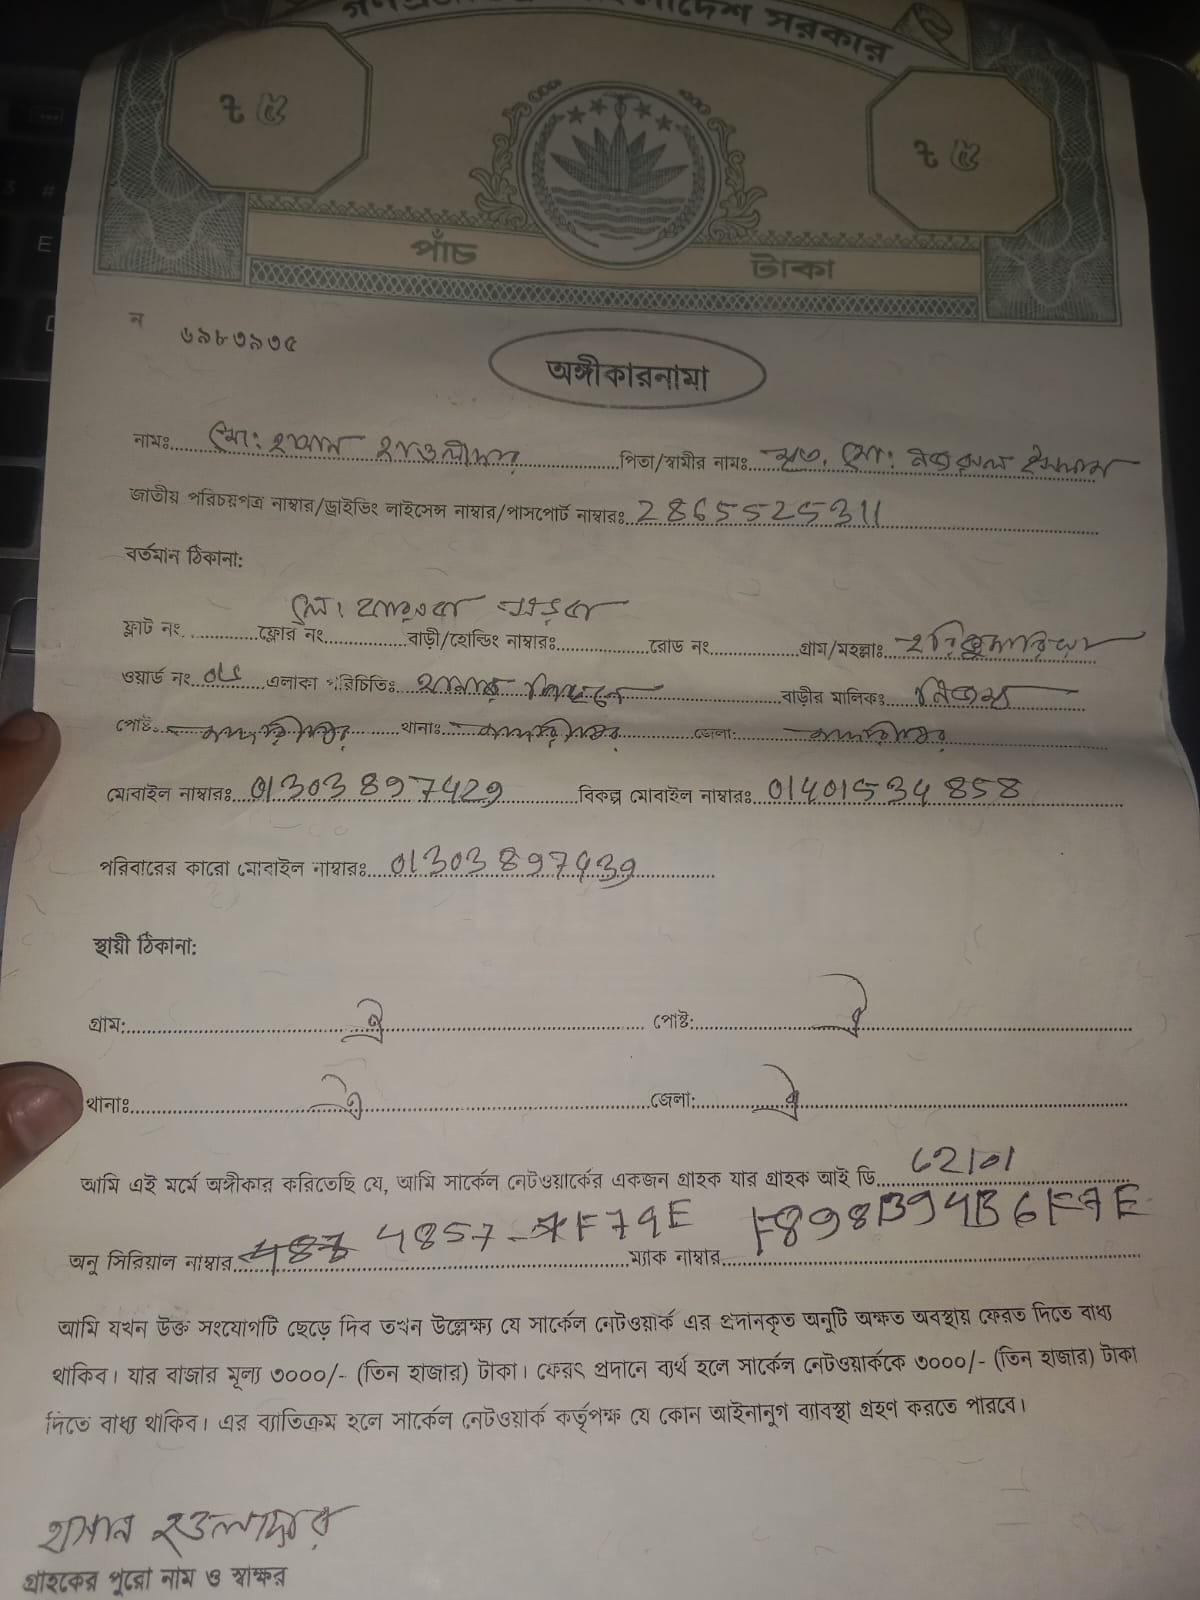 গণপ্রজাতন্ত্রী বাংলাদেশ সরকার
৳ ৫ ৳ ৫
পাঁচ টাকা
ন ৬৯৮৩৯৩৫
অঙ্গীকারনামা
নামঃ মো: হাসান হাওলাদার পিতা/স্বামীর নামঃ মৃত. মো: নজরুল ইসলাম
জাতীয় পরিচয়পত্র নাম্বার/ড্রাইভিং লাইসেন্স নাম্বার/পাসপোর্ট নাম্বারঃ 2865525311
বর্তমান ঠিকানা:
ফ্লাট নং. ফ্লোর নং বাড়ী/হোল্ডিং নাম্বারঃ রোড নং গ্রাম/মহল্লাঃ হরিকুমারিয়া
ওয়ার্ড নং এলাকা পরিচিতিঃ বাড়ীর মালিকঃ নিজস্ব
পোষ্ট: মাদারীপুর থানাঃ মাদারীপুর জেলা: মাদারীপুর
মোবাইল নাম্বারঃ 01303897429 বিকল্প মোবাইল নাম্বারঃ 01401534858
পরিবারের কারো মোবাইল নাম্বারঃ 01303897439
স্থায়ী ঠিকানা:
গ্রাম: ঐ পোষ্ট: ঐ
থানাঃ ঐ জেলা: ঐ
আমি এই মর্মে অঙ্গীকার করিতেছি যে, আমি সার্কেল নেটওয়ার্কের একজন গ্রাহক যার গ্রাহক আই ডি 62101
অনু সিরিয়াল নাম্বার 4857-7F79E ম্যাক নাম্বার F898B94B6F7E
আমি যখন উক্ত সংযোগটি ছেড়ে দিব তখন উল্লেক্ষ্য যে সার্কেল নেটওয়ার্ক এর প্রদানকৃত অনুটি অক্ষত অবস্থায় ফেরত দিতে বাধ্য
থাকিব। যার বাজার মূল্য ৩০০০/- (তিন হাজার) টাকা। ফেরৎ প্রদানে ব্যর্থ হলে সার্কেল নেটওয়ার্ককে ৩০০০/- (তিন হাজার) টাকা
দিতে বাধ্য থাকিব। এর ব্যাতিক্রম হলে সার্কেল নেটওয়ার্ক কর্তৃপক্ষ যে কোন আইনানুগ ব্যাবস্থা গ্রহণ করতে পারবে।
হাসান হাওলাদার
গ্রাহকের পুরো নাম ও স্বাক্ষর